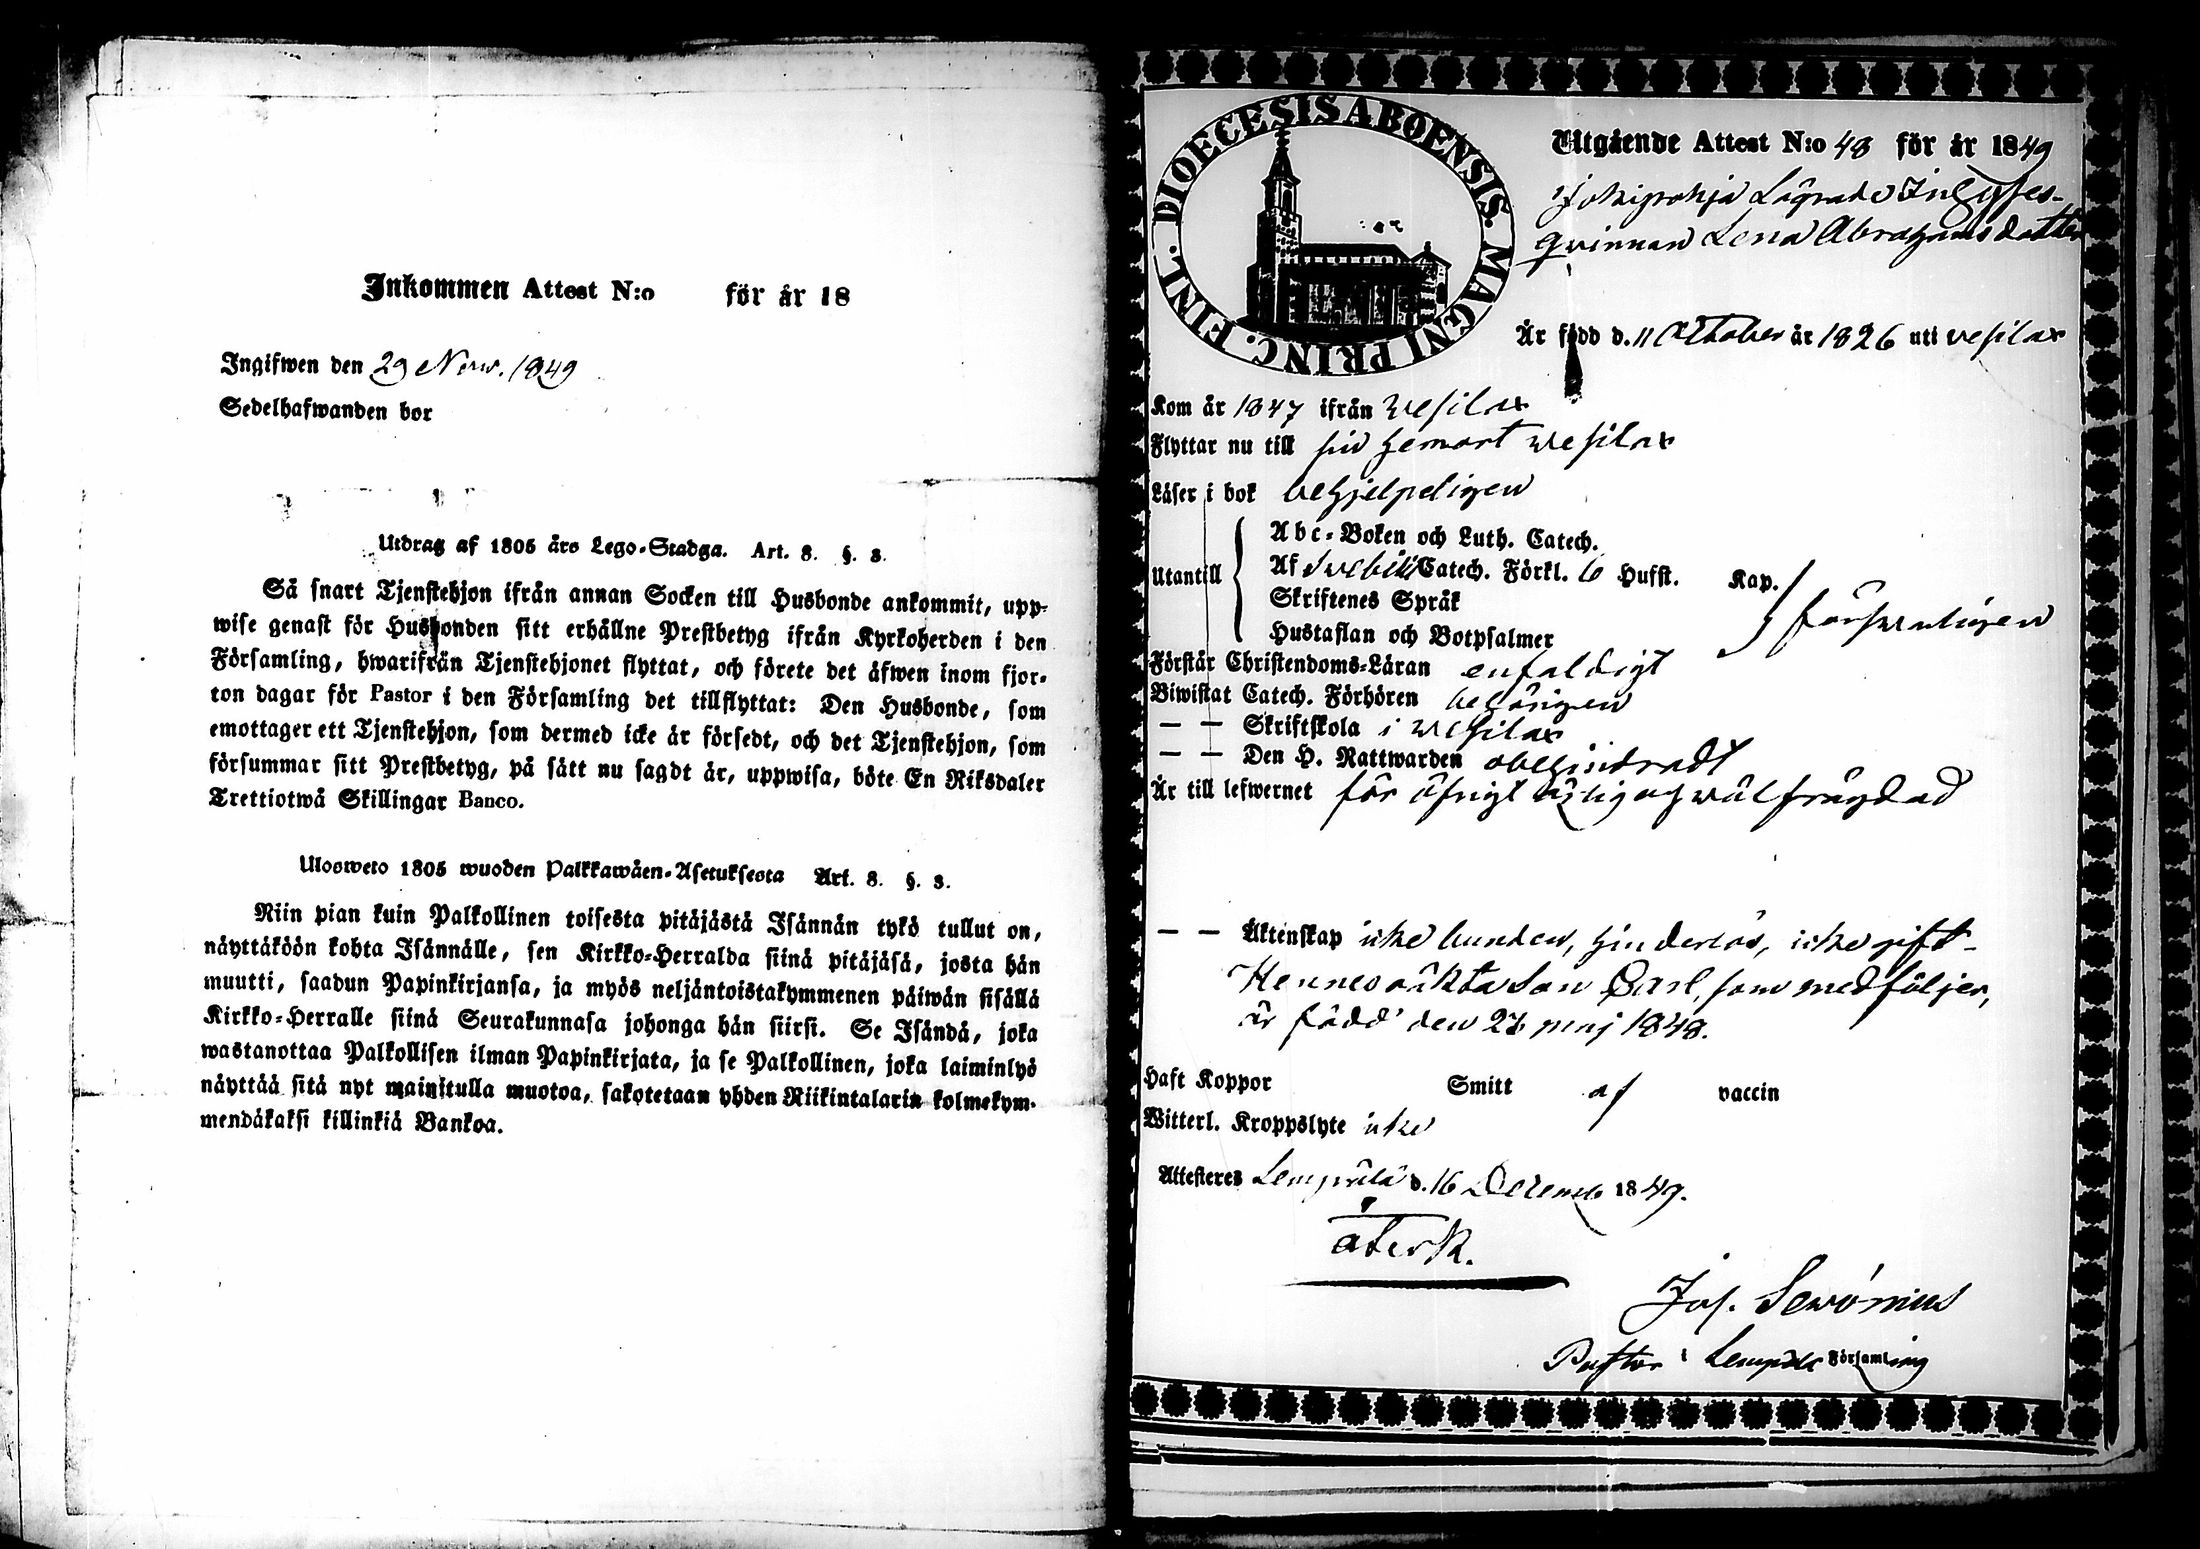 Inkommen Attest N:o för år 18
Ingifwen den 29 Nov. 1849
Sedelhafwanden bor
Utdrag af 1805 års Lego-Stadga. Art. 8. §. 3.
Så snart Tjenstehjon ifrån annan Socken till Husbonde ankommit, upp-
wise genast för Husbonden sitt erhållne Prestbetyg ifrån Kyrkoherden i den
Församling, hwarifrån Tjenstehjonet flyttat, och förete det äfwen inom fjor-
ton dagar för Pastor i den Församling det tillflyttat: Den Husbonde, som
emottager ett Tjenstehjon, som dermed icke är försedt, och det Tjenstehjon, som
försummar sitt Prestbetyg, på sätt nu sagdt är, uppwisa, böte En Riksdaler
Trettiotwå Skillingar Banco.
Ulosweto 1805 wuoden Palkkawäen-Asetuksesta Art. 8. §. 3.
Niin pian kuin Palkollinen toisesta pitäjästä Isännän tykö tullut on,
näyttäköön kohta Isännälle, sen Kirkko-Herralda siinä pitäjäsä, josta hän
muutti, saadun Papinkirjansa, ja myös neljäntoistakymmenen päiwän sisällä
Kirkko-Herralle siinä Seurakunnasa johonga hän siirsi. Se Isändä, joka
wastanottaa Palkollisen ilman Papinkirjata, ja se Palkollinen, joka laiminlyö
näyttää sitä nyt mainitulla muotoa, sakotetaan yhden Riikintalarin kolmekym-
mendäkaksi killinkiä Bankoa.
DIOECESIS ABOENSIS. MAGNI PRINC. FINL.
Utgående Attest N:o 48 för år 1849
Jokipohja Lägrade Inhyses-
qvinnan Lena Abrahamsdotter
Är född d. 11 October år 1826 uti Vesilax
Kom år 1847 ifrån Wesilax
Flyttar nu till sin hemort Wesilax
Läser i bok behjelpeligen
Utantill
Abc-Boken och Luth. Catech.
Af Svebilii Catech. Förkl. 6 Hufst. Kap.
Skriftenes Språk
Hustaflan och Botpsalmer
försvarligen
Förstår Christendoms-Läran enfaldigt
Biwistat Catech. Förhören behörigen
— — Skriftskola i Wesilax
— — Den H. Nattwarden obehindradt
Är till lefwernet för öfrigt ärlig och wälfrägdad
— — Äktenskap icke bunden, hinderlös, icke gift-
Hennes oäkta Son Carl, som medföljer,
är född den 26 maj 1848.
Haft Koppor Smitt af vaccin
Witterl. Kroppslyte icke
Attesteres Lempälä d. 16 Decemb 1849.
återk.
Jos. Servónius
Pastor i Lempälä Församling